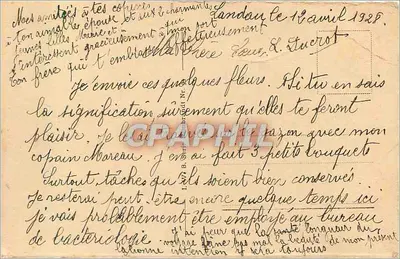 Landau le 12 avril 1928.
Ma chère Sœur,
Je envoie ces quelques fleurs. Si tu en sais
la signification sûrement qu'elles te feront
plaisir. Je les gazon avec mon
copain Moreau. J'en ai fait 3 petits bouquet
Surtout tâches qu'ils soient bien conservés.
Je resterai peut être encore quelque temps ici
je vais probablement être employé au bureau
de bactériologie
J'ai peur que la longueur du
voyage fane pas mal la beauté de mon présent
la bonne intention y sera toujours
Mes amitiés à tes copines
Ton aimable épouse et aux charmantes
jeunes filles qui
s'intéressent gracieusement à mon sort
Ton frère qui t'embrasse affectueusement
L. Ducrot
CPARPHIL